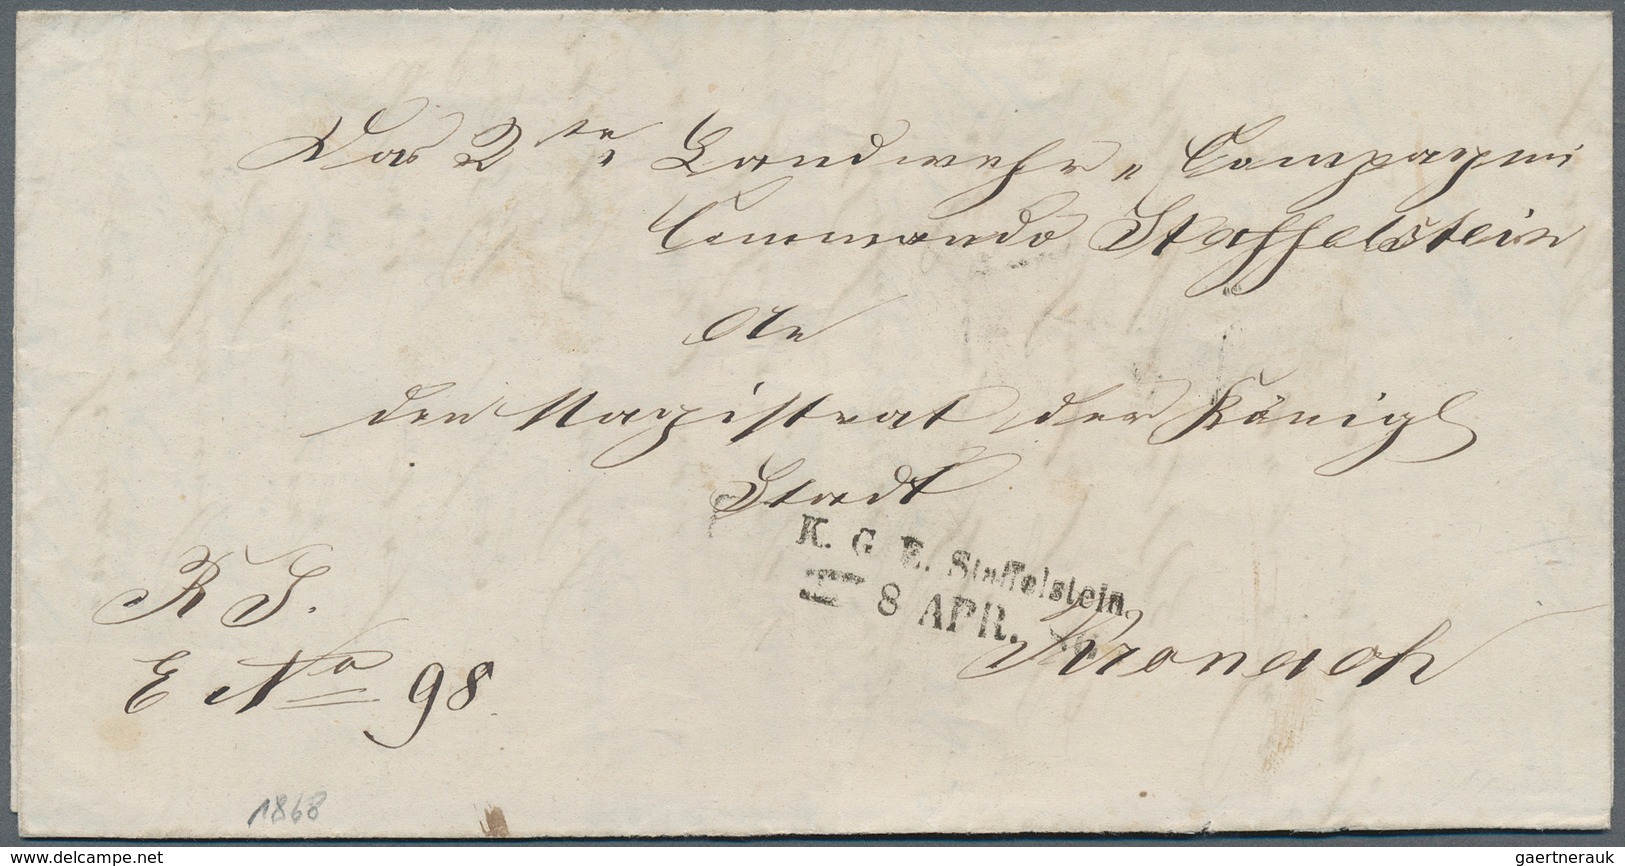 Das 2te Landwehr-Compagnie
Commando Staffelstein
An
den Magistrat der Königl
Stadt
K. G. E. Staffelstein.
8 APR.
Kronach
R S.
E No 98
1868
the-collectors-company.com
gaertnerauk